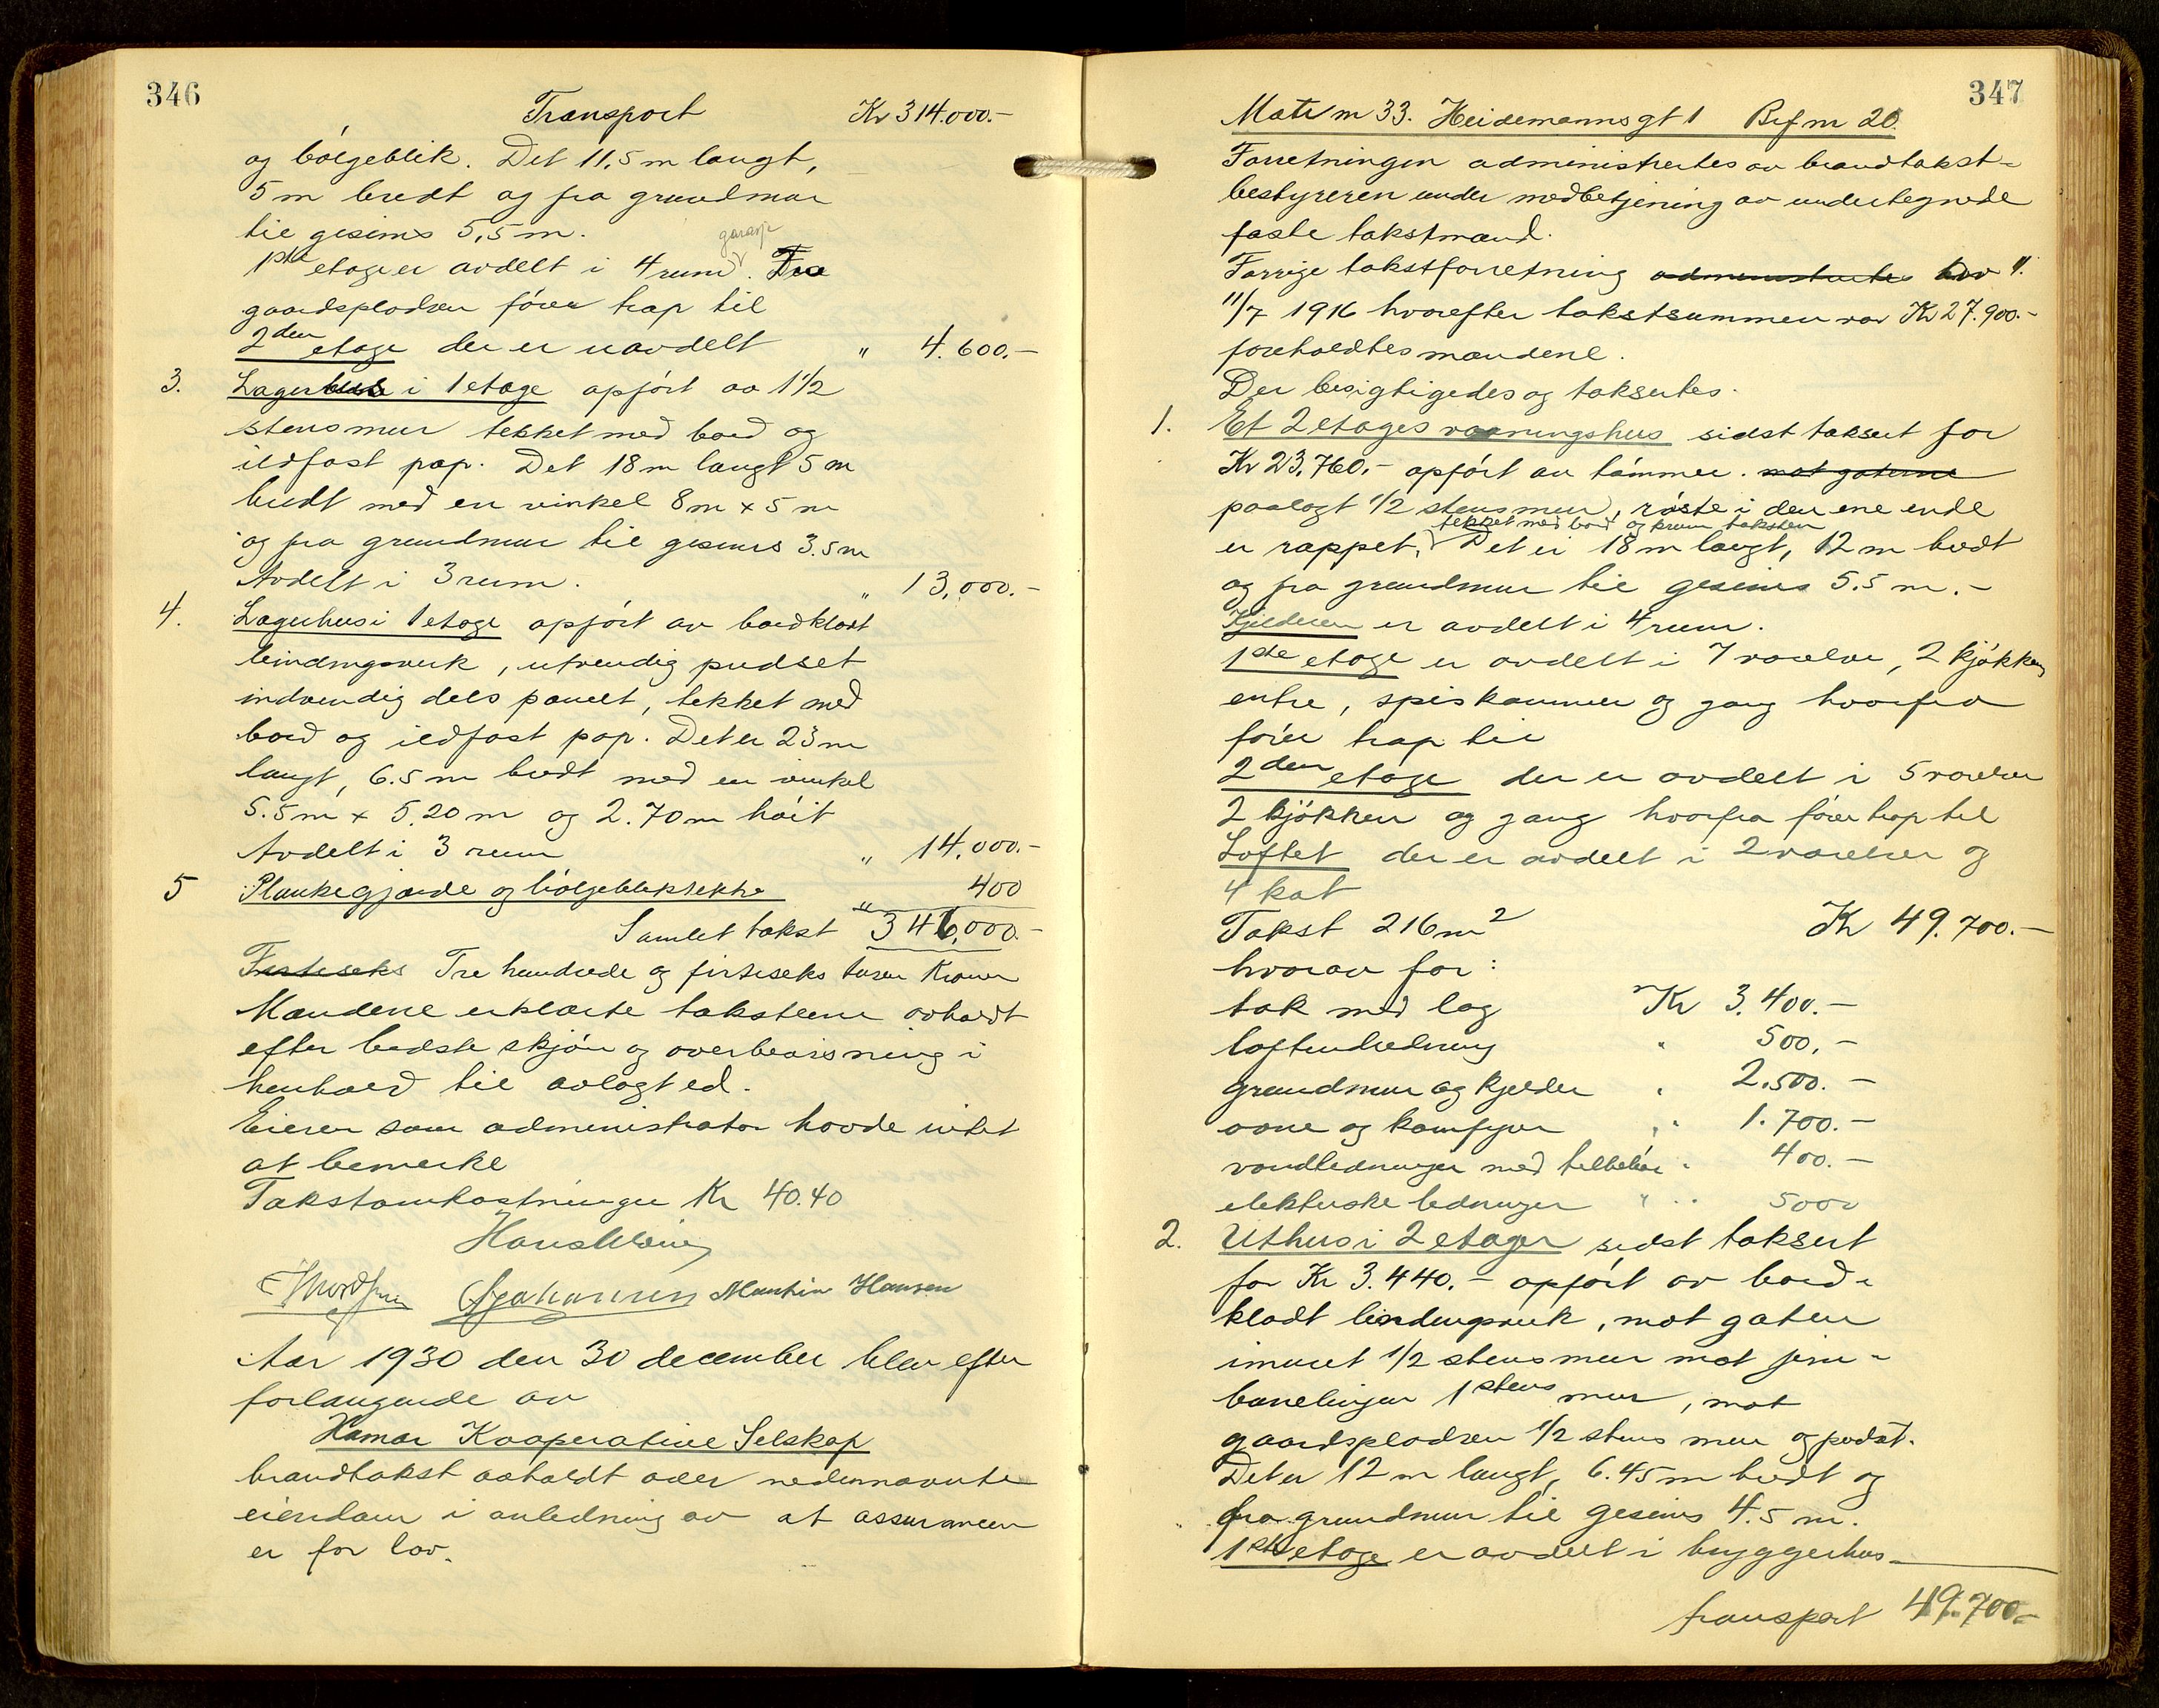 346
Transport Kr 314.000.-
og bölgeblik. Det 11,5 m langt,
5 m bredt og fra grundmur
til gesims 5,5 m.
garasje
1ste etage er avdelt i 4 rum. Fra
gaardspladsen förer trap til
2den etage der er uavdelt " 4.600.-
3. Lagerhus i 1 etage opfört av 1 1/2
stens mur tekket med bord og
ildfast pap. Det 18 m langt 5 m
bredt med en vinkel 8 m x 5 m
og fra grundmur til gesims 3.5 m
Avdelt i 3 rum. " 13,000.-
4. Lagerhus i 1 etage opfört av bordklædt
bindingsverk, utvendig pudset
indvendig dels panelt, tekket med
bord og ildfast pap. Det er 23 m
langt, 6.5 m bredt med en vinkel
5.5 m x 5.20 m og 2.70 m höit
Avdelt i 3 rum " 14,000.-
5 Plankegjærde og bölgeblikskke " 400
Samlet takst 346,000.-
Firtiseks Tre hundrede og firtiseks tusen Kroner
Mændene erklærte taksterne avholdt
efter bedste skjön og overbevisning i
henhold til avlagt ed.
Eieren som administrator havde intet
at bemerke
Takstomkostninger Kr 40.40
Martin Hansen
Aar 1930 den 30 december blev efter
forlangende av
Hamar Kooperative Selskap
brandtakst avholdt over nedennævnte
eiendom i anledning av at assurancen
er for lav.
347
Matr nr 33. Heidemannsgt 1 Brf nr 20.
Forretningen administrertes av brandtakst-
bestyreren under medbetjening av undertegnede
faste takstmænd.
Forrige takstforretning administrertes av
11/7 1916 hvorefter takstsummen var Kr 27.900.-
foreholdtes mændene.
Der besigtigedes og taksertes.
1. Et 2 etages vaaningshus sidst taksert for
Kr 23,760.- opfört av tömmer. mot gaterne
paalagt 1/2 stens mur, röste i den ene ende
tekket med bord og krum taksten
er rappet. Det er 18 m langt, 12 m bredt
og fra grundmur til gesims 5.5 m.-
Kjelderen er avdelt i 4 rum.
1ste etage er avdelt i 7 værelser, 2 kjökken
entre, spiskammer og gang hvorfra
förer trap til
2den etage der er avdelt i 5 værelser
2 kjökken og gang hvorfra förer trap til
Loftet der er avdelt i 2 værelser og
4 kot
Takst 216 m2 Kr 49.700.-
hvorav for:
tak med lag Kr 3.400.-
loftindredning " 500.-
grundmur og kjelder " 2.500.-
ovne og komfyrer " 1.700.-
vandledninger med tilbehör " 400.-
elektriske ledninger " 500
2. Uthus i 2 etager sidst taksert
for Kr 3.440.- opfört av bord-
klædt bindingsverk, mot gaten
imuret 1/2 stens mur mot jern-
banelinjen 1 stens mur, mot
gaardspladsen 1/2 stens mur og pudset.
Det er 12 m langt, 6.45 m bredt og
fra grundmur til gesims 4.5 m.
1ste etage er avdelt i bryggerhus
transport 49.700-